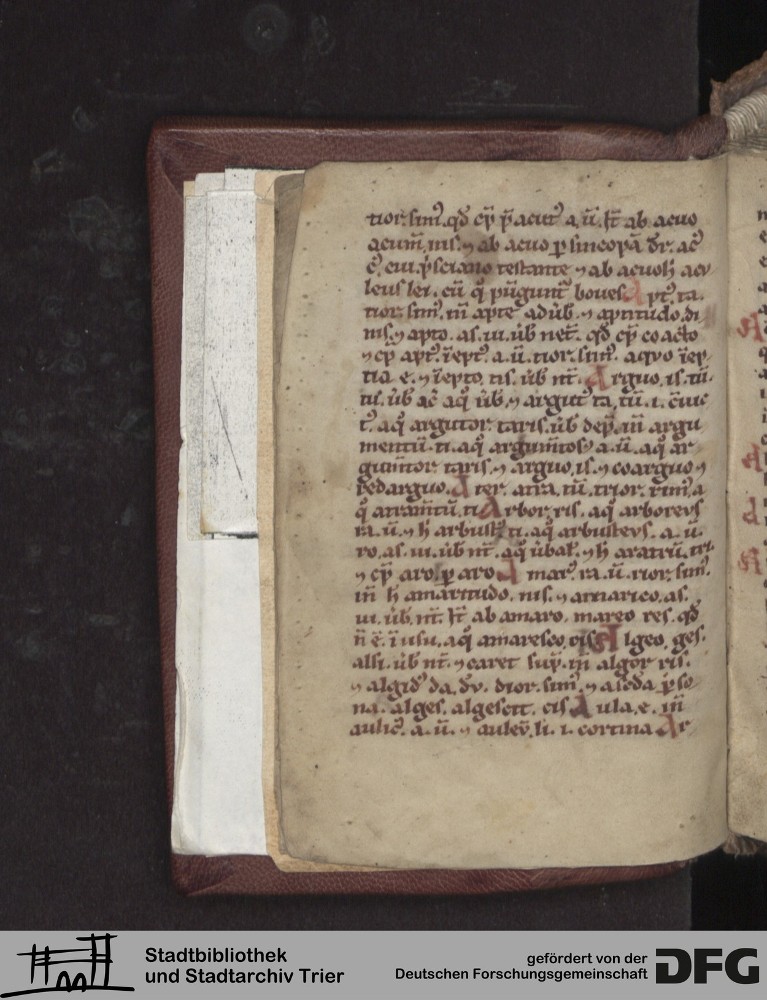 tior. simꝰ. qd̄ cp̄ p̄acutꝰ a. ū. s̄t ab acuo
acum̄, nis. ⁊ ab acuo ꝑ sincopā dr̄. acꝰ
cꝰ, cui. p̓sciano testante ⁊ ab acuoh̄ acu
leus lei. cū q̓ pūgunt̄ boues. A ptꝰ. ta.
tior. simꝰ. īn apte adūb. ⁊ aptitudo. di
nis. ⁊ apto. as. ui. ūb net̄. qd̄ cp̄ coacto
⁊ cp̄ aptꝰ. īeptꝰ. a. ū. tior. simꝰ. a quo īep
tia e. ⁊ īepto. tis. ūb nt̄. A rguo. is. tū.
ti. ūb ac̄ aq̓ ūb. ⁊ argutꝰ ta, tū. i.
tꝰ. aq̓ argutor. taris. ūb dep̄. in̄ argu
mentū. ti. aq̓ argum̄tosꝰ a. ū. aq̓ ar
gum̄tor. taris. ⁊ arguo. is. ⁊ coarguo ⁊
redarguo. A ter. atra. tū. trior. rimꝰ. a
q̓ atram̄tū. ti A rbor. ris. aq̓ arboreus
ra. ū. ⁊ h̄ arbustꝰ ti. aq̓ arbusteus. a. ū.
ro. as. ui. ūb nt̄. aq̓ ūbal̄. ⁊ h̄ aratrū. tri.
⁊ cp̄ aro. ꝑ aro A marꝰ. ra. ū. rior. simꝰ.
in̄ h̄ amaritudo. nis. ⁊ amarico. as.
ui. ūb. nt̄. s̄t ab amaro. mareo res. qd̄
n̄ ē. ī usu. aq̓ amaresco. cis A lgeo. ges.
alsi. ūb nt̄. ⁊ caret sup̄. in̄ algor ris.
⁊ algidꝰ da. dū. dior. simꝰ. ⁊ a scda p̓so
na. alges. algescit. cis A ula. e. in̄
aulicꝰ. a. ū. ⁊ auleū. li. i. cortina A r
Stadtbibliothek
und Stadtarchiv Trier
gefördert von der
Deutschen Forschungsgemeinschaft
DFG